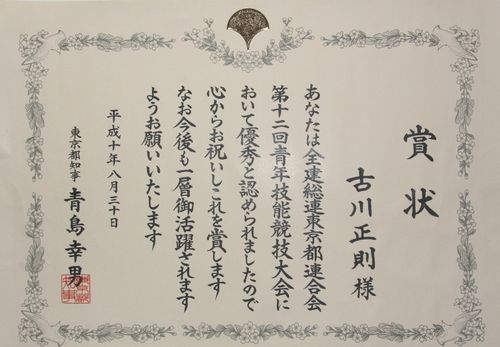 賞状
古川正則様
あなたは全建総連東京都連合会
第十二回青年技能競技大会に
おいて優秀と認められましたので
心からお祝いしこれを賞します
なお今後も一層御活躍されます
ようお願いいたします
平成十年八月三十日
東京都知事 青島幸男